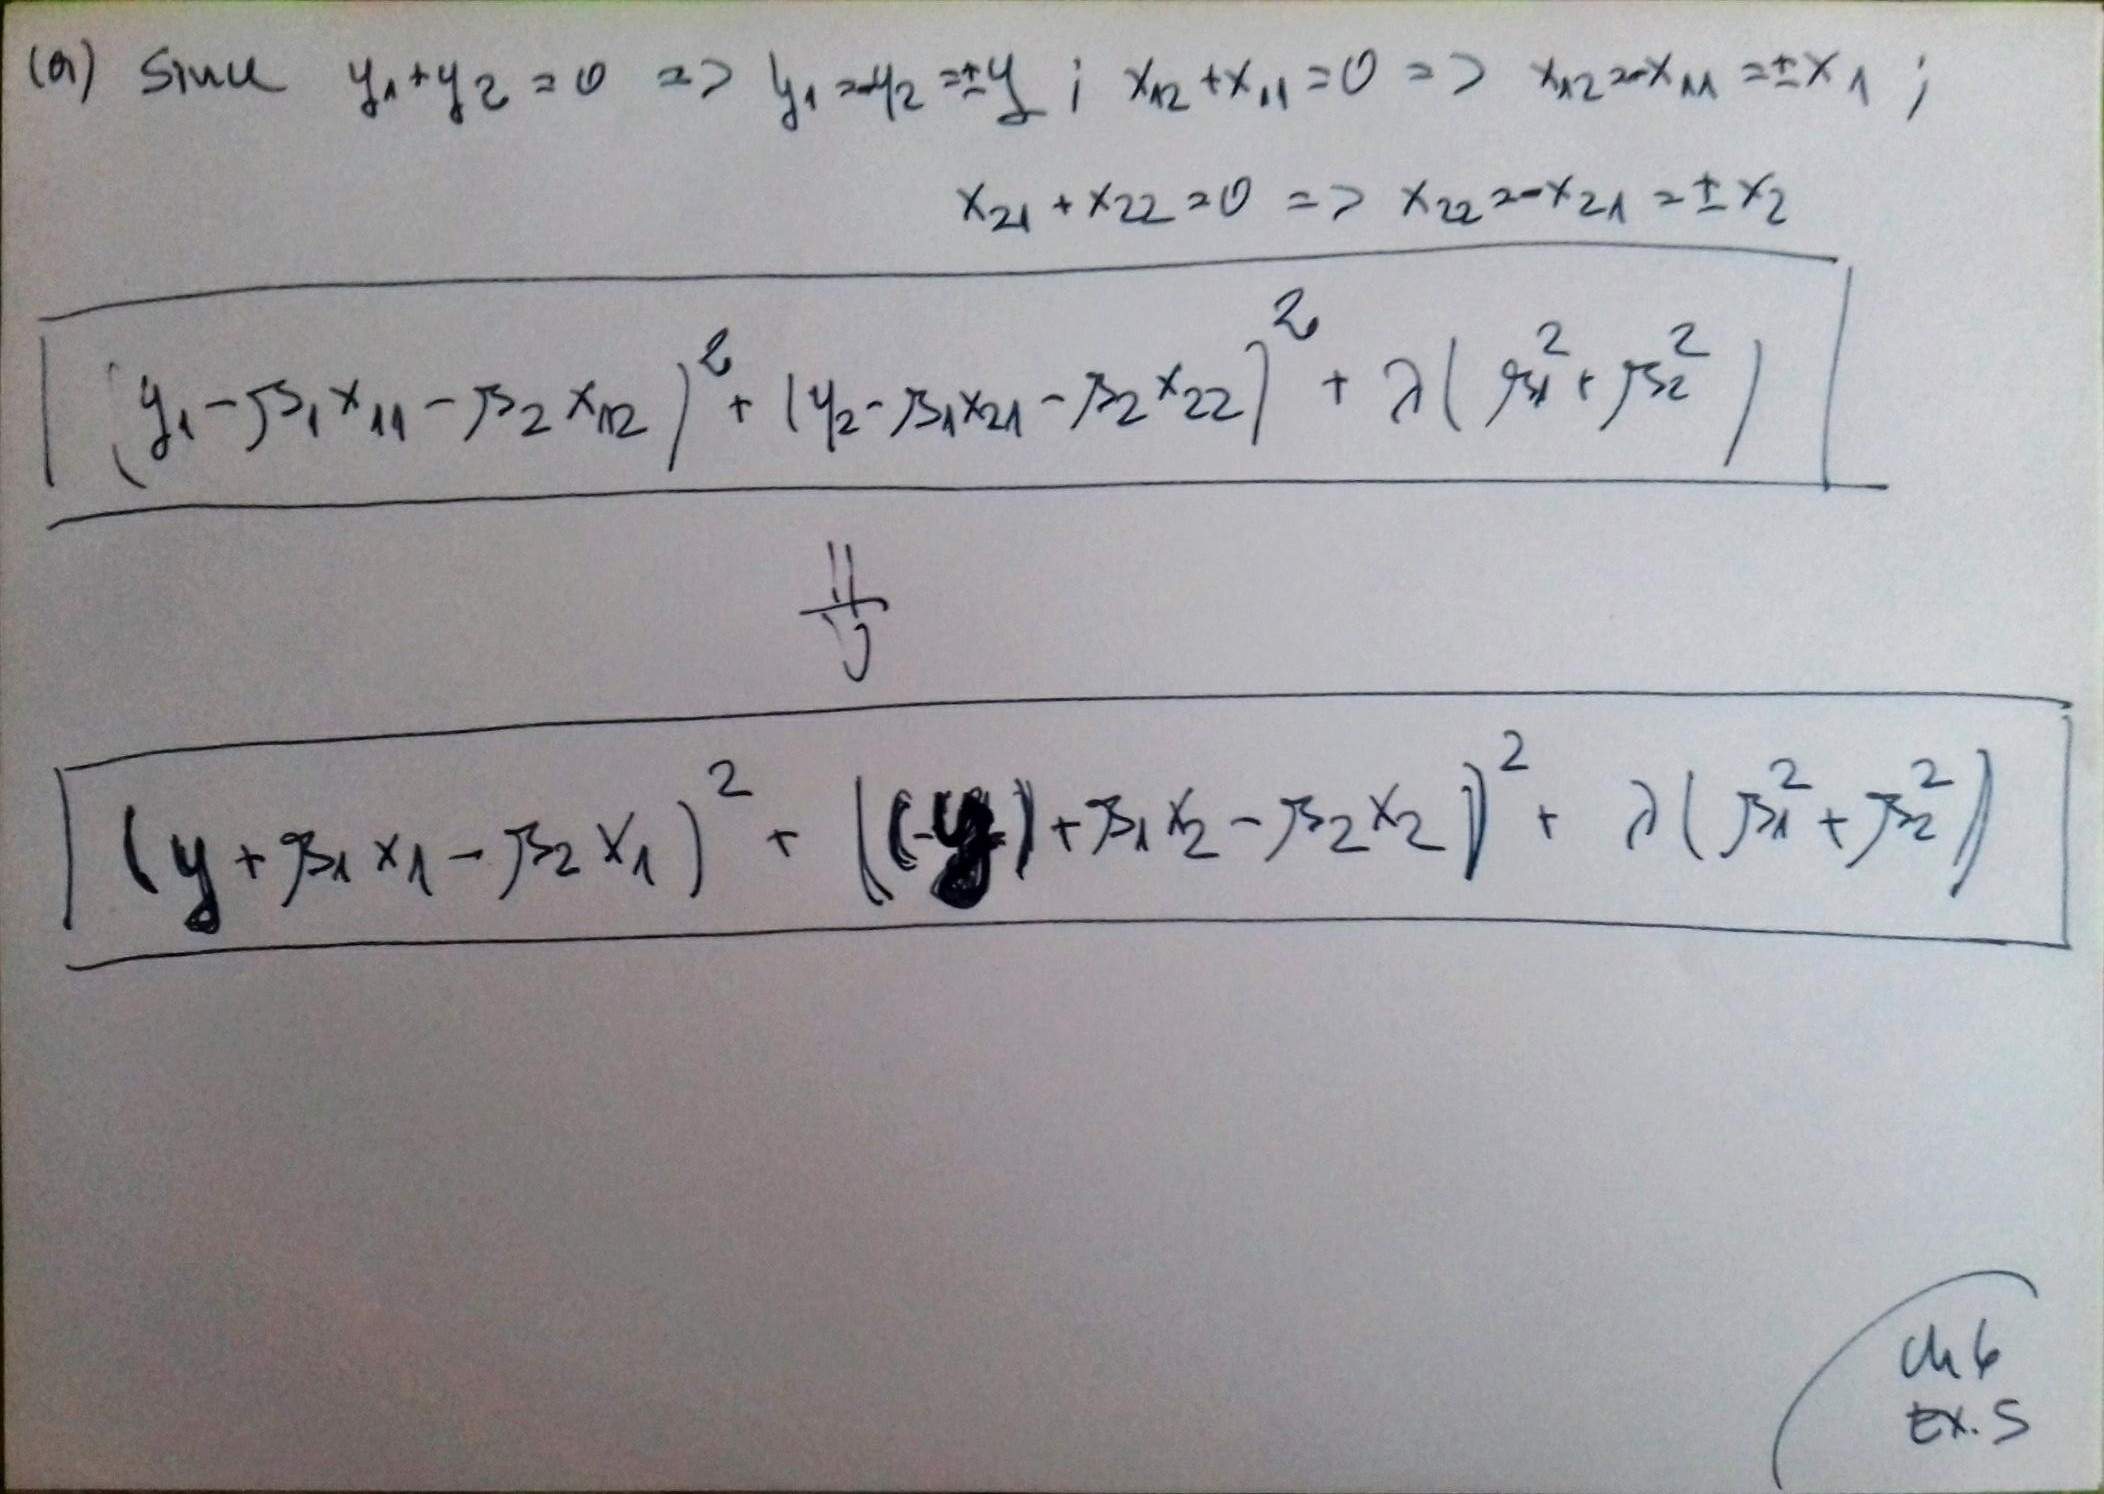 (a) Since y₁+y₂=0 => y₁=-y₂=±y ; x₁₂+x₁₁=0 => x₁₂=-x₁₁=±x₁ ;
x₂₁+x₂₂=0 => x₂₂=-x₂₁=±x₂
(y₁-β₁x₁₁-β₂x₁₂)²+(y₂-β₁x₂₁-β₂x₂₂)²+λ(β₁²+β₂²)
⇓
(y+β₁x₁-β₂x₁)²+((-y)+β₁x₂-β₂x₂)²+λ(β₁²+β₂²)
Ch 6
Ex. 5